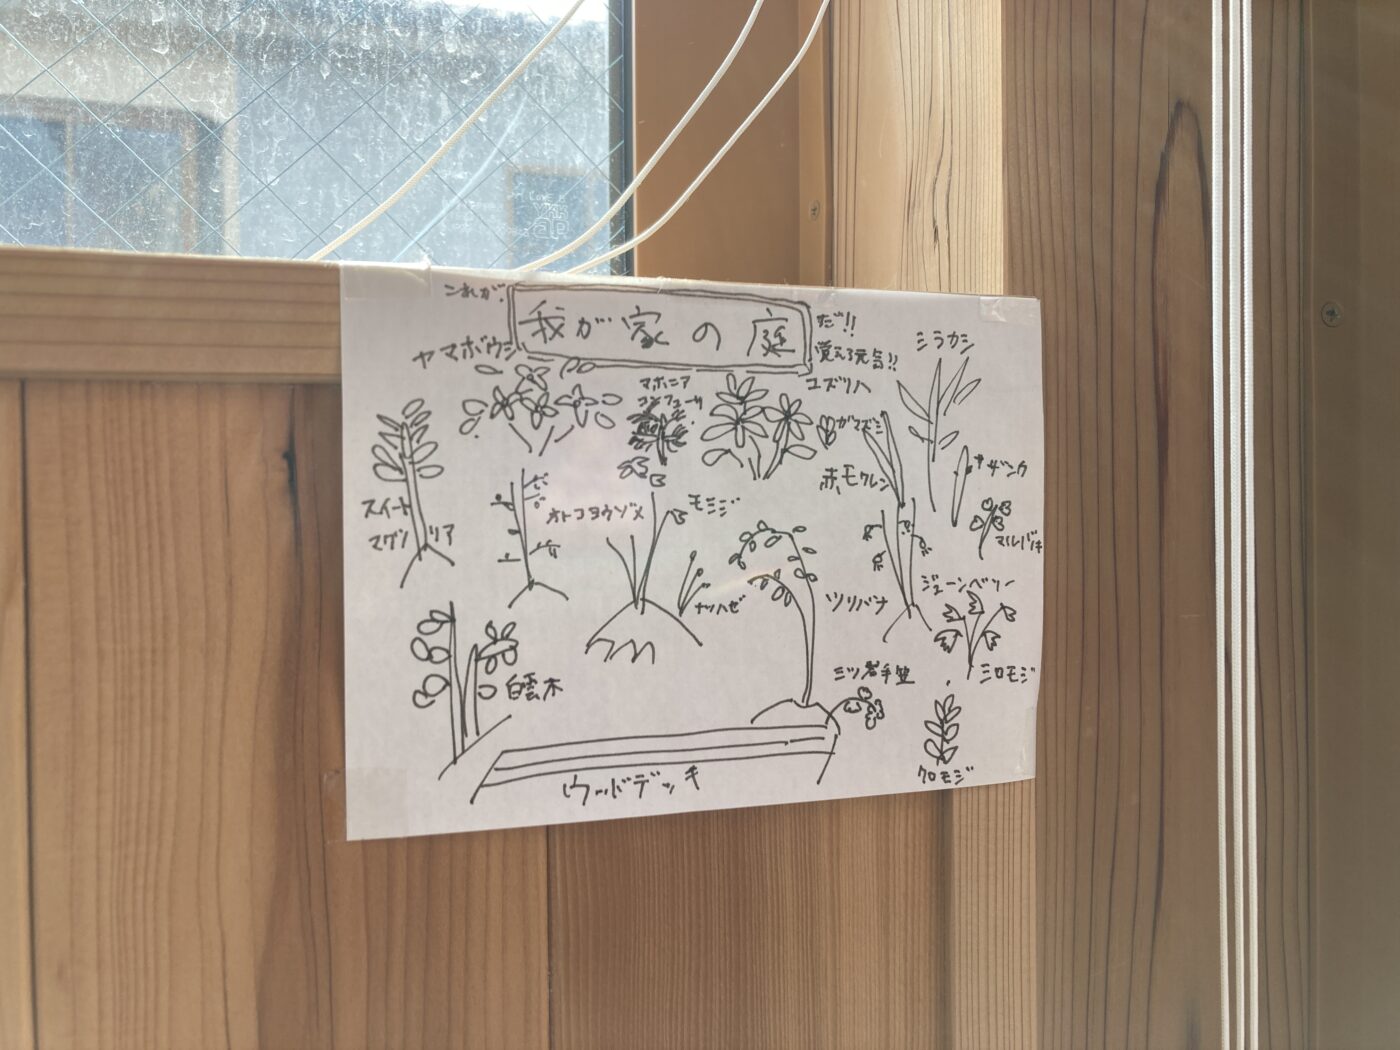 これが!
我が家の庭
だ!!
覚える元気!!
ヤマボウシ
マホニア
コンフューサ
ユズリハ
シラカシ
ガマズミ
赤モクレン
サザンカ
マルバノキ
スイート
マグノリア
オトコヨウゾメ
モミジ
ナツハゼ
ツリバナ
ジューンベリー
白雲木
三ツ岩手笠
シロモジ
ウッドデッキ
クロモジ